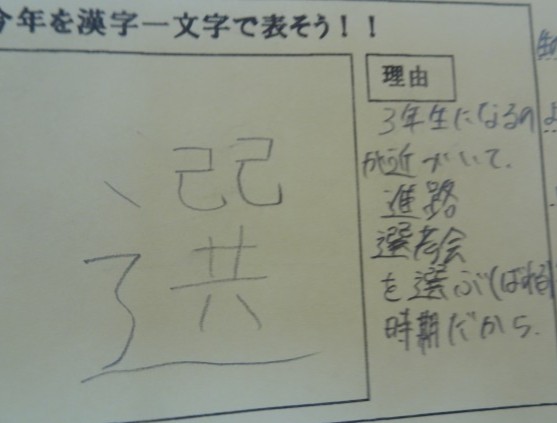 今年を漢字一文字で表そう！！
選
理由
3年生になるの
が近づいて、
進路
選考会
を選ぶ(ばれる)
時期だから。